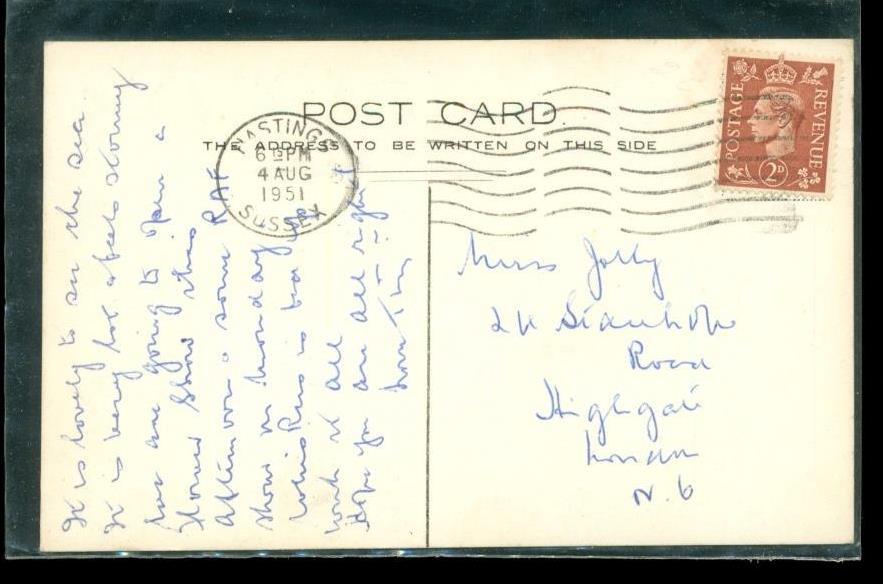 POST CARD.
THE ADDRESS TO BE WRITTEN ON THIS SIDE
HASTINGS
6 15 PM
4 AUG
1951
SUSSEX
POSTAGE
REVENUE
2D
It is lovely to see the sea
It is very hot & feels stormy
but are going to a
Flower Show this
Afternoon & some RAF
Show on Monday
is
it all
Hope you are all right
Miss Jolly
Road
Highgate
London
N. 6